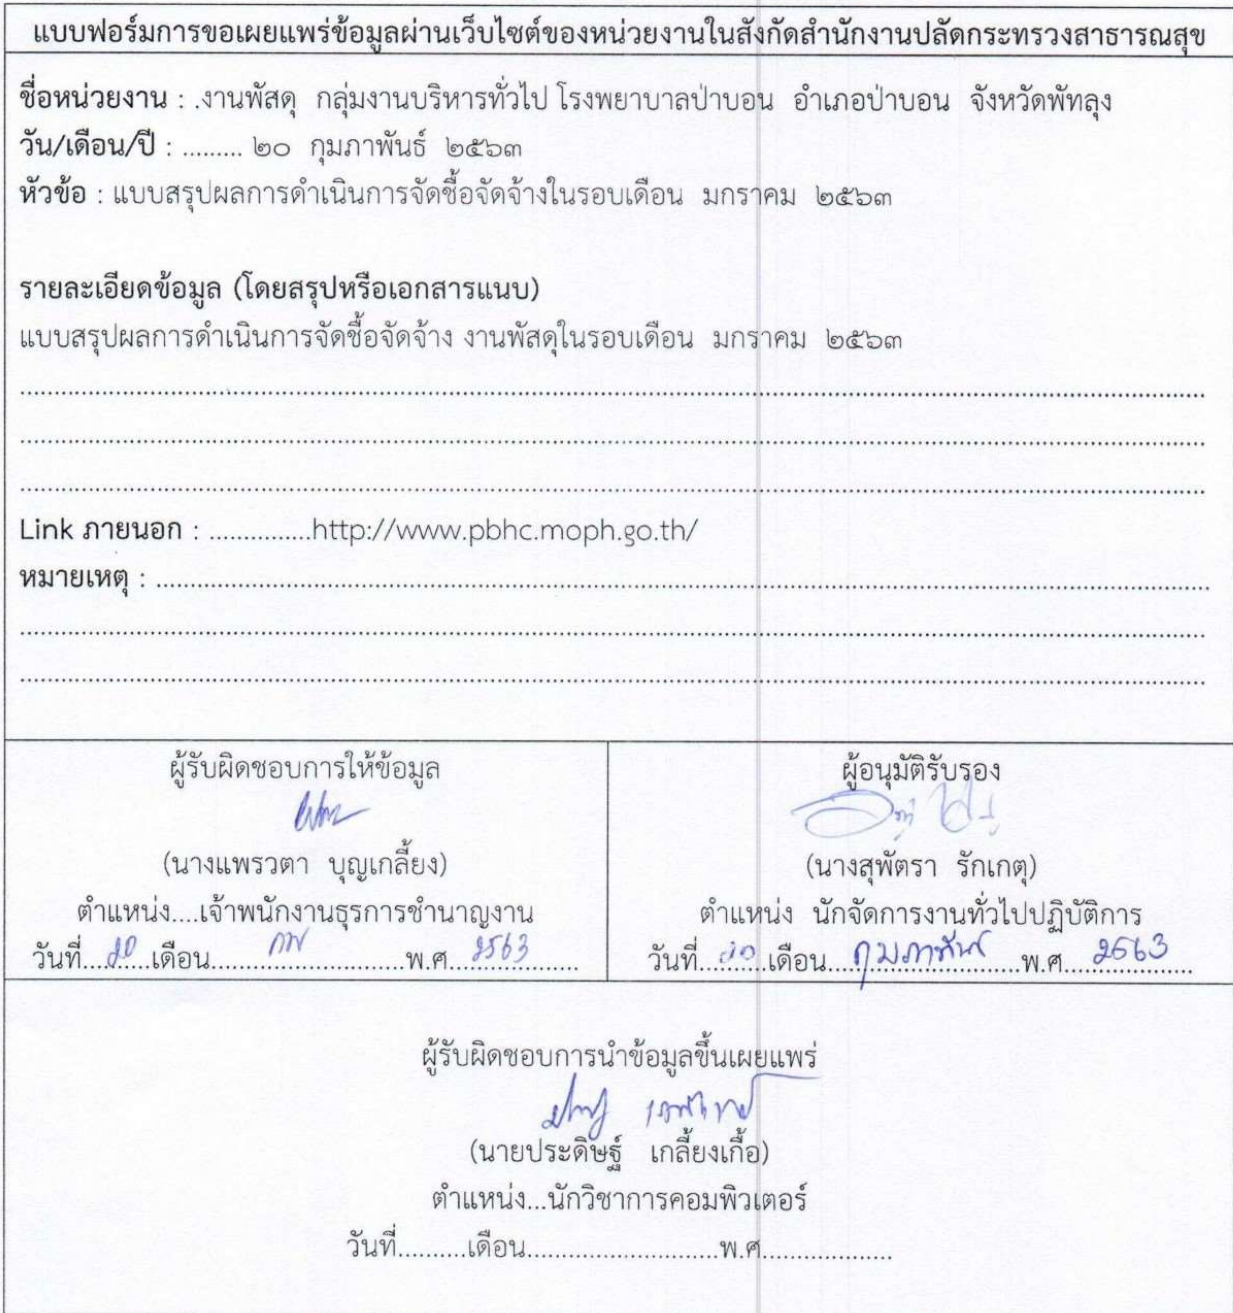 แบบฟอร์มการขอเผยแพร่ข้อมูลผ่านเว็บไซต์ของหน่วยงานในสังกัดสำนักงานปลัดกระทรวงสาธารณสุข
ชื่อหน่วยงาน : .งานพัสดุ กลุ่มงานบริหารทั่วไป โรงพยาบาลป่าบอน อำเภอป่าบอน จังหวัดพัทลุง
วัน/เดือน/ปี : ......... ๒๐ กุมภาพันธ์ ๒๕๖๓
หัวข้อ : แบบสรุปผลการดำเนินการจัดซื้อจัดจ้างในรอบเดือน มกราคม ๒๕๖๓
รายละเอียดข้อมูล (โดยสรุปหรือเอกสารแนบ)
แบบสรุปผลการดำเนินการจัดซื้อจัดจ้าง งานพัสดุในรอบเดือน มกราคม ๒๕๖๓
Link ภายนอก : ...............http://www.pbhc.moph.go.th/
หมายเหตุ :
ผู้รับผิดชอบการให้ข้อมูล
(นางแพรวตา บุญเกลี้ยง)
ตำแหน่ง....เจ้าพนักงานธุรการชำนาญงาน
วันที่....20.....เดือน.........กพ.............พ.ศ....2563......
ผู้อนุมัติรับรอง
(นางสุพัตรา รักเกตุ)
ตำแหน่ง นักจัดการงานทั่วไปปฏิบัติการ
วันที่....20....เดือน....กุมภาพันธ์.....พ.ศ....2563....
ผู้รับผิดชอบการนำข้อมูลขึ้นเผยแพร่
(นายประดิษฐ์ เกลี้ยงเกื้อ)
ตำแหน่ง...นักวิชาการคอมพิวเตอร์
วันที่..........เดือน............................พ.ศ...................